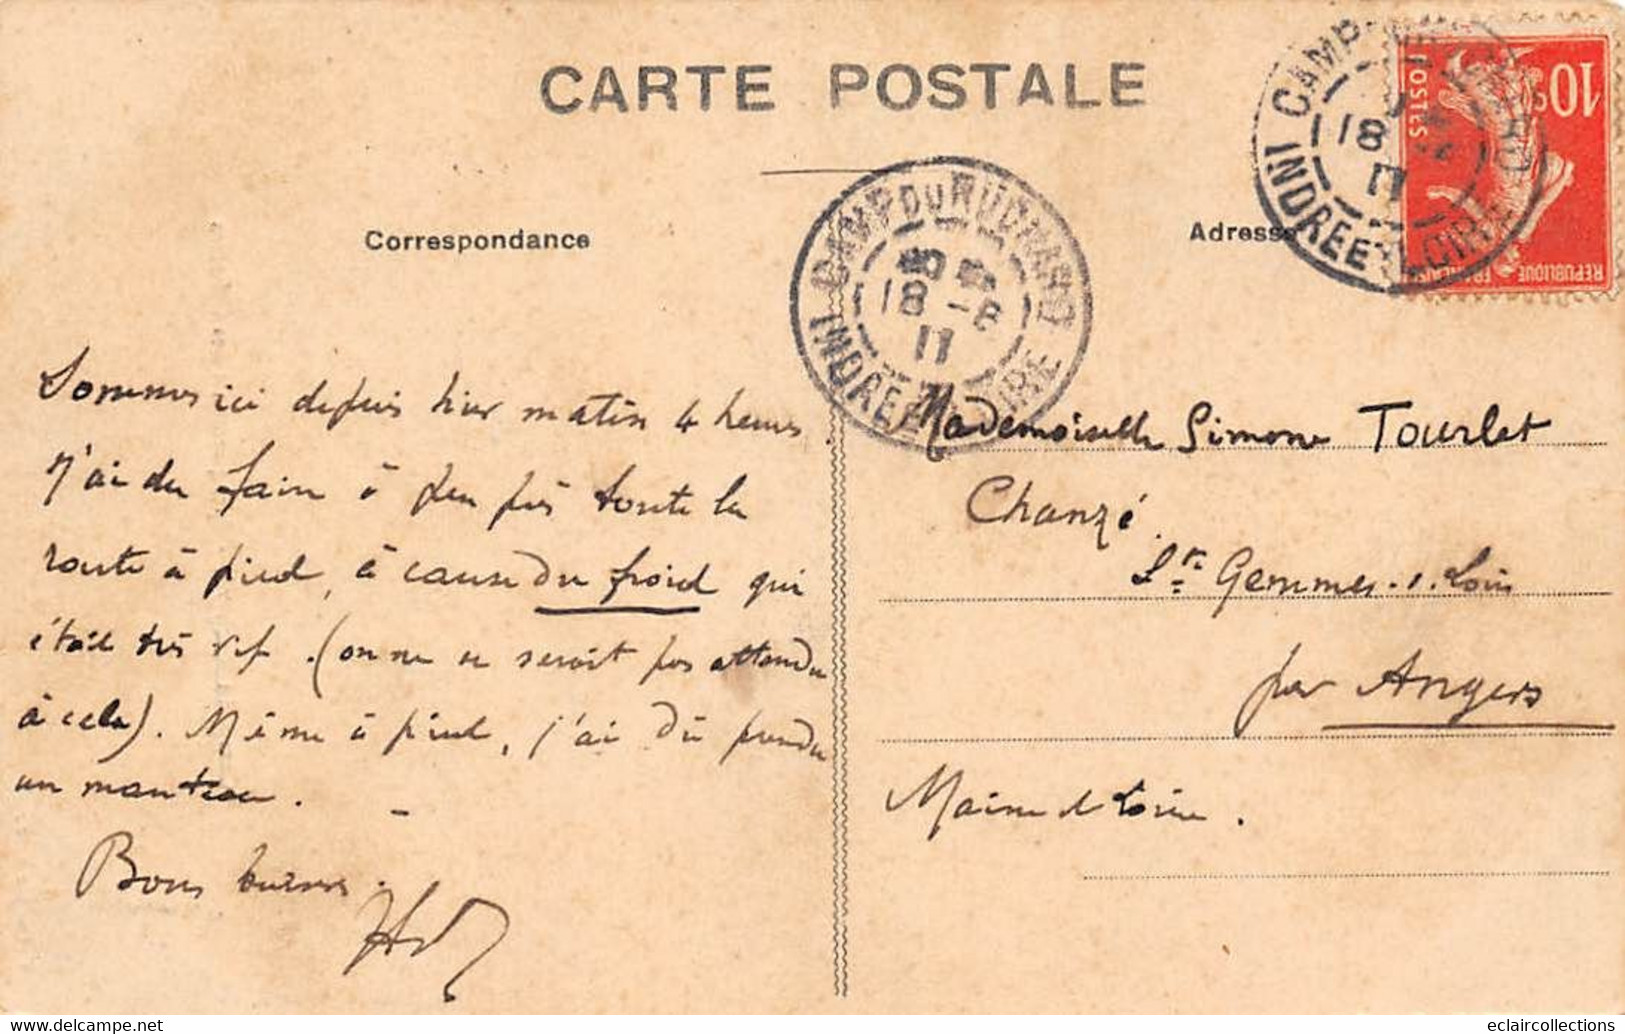 CARTE POSTALE
Correspondance
Adresse
CAMP DU RUCHARD
18 -8
11
INDRE ET LOIRE
CAMP DU RUCHARD
18
11
INDRE ET LOIRE
10c
POSTES
REPUBLIQUE FRANCAISE
Sommes ici depuis hier matin 4 heures.
J'ai du faire à peu près toute la
route à pied, à cause du froid qui
était très vif. (on ne se serait pas attendu
à cela). Même à pied, j'ai dû prendre
un manteau.
Bons baisers.
Mademoiselle Simone Tourlet
Chanzé.
Ste Gemmes-s-Loire
par Angers
Maine et Loire.
www.delcampe.net
eclaircollections